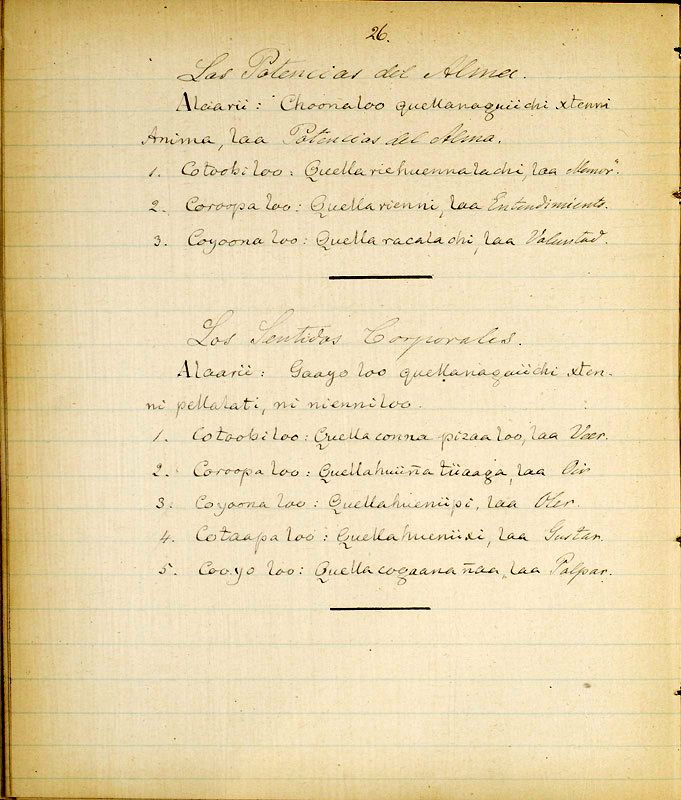 26.
Las Potencias del Alma.
Alaarii: Choonaloo quellanaguiichi xtenni
Anima, laa Potencias del Alma.
1. Cotoobi loo: Quella riehuennalachi, laa Memorª.
2. Coroopa loo: Quella rienni, laa Entendimiento.
3. Coyoona loo: Quella racalachi, laa Voluntad.
Los Sentidos Corporales.
Alaarii: Gaayo loo quellanaguiichi xten-
ni pellalati, ni nienniloo.
1. Cotoobi loo: Quella conna pizaa loo, laa Veer.
2. Coroopa loo: Quellahuiiña tiiaaga, laa Oir
3: Coyoona loo: Quellahueniipi, laa Oler.
4. Cotaapa loo: Quellahueniixi, laa Gustar.
5. Cooyo loo: Quella cogaana ñaa, laa Palpar.